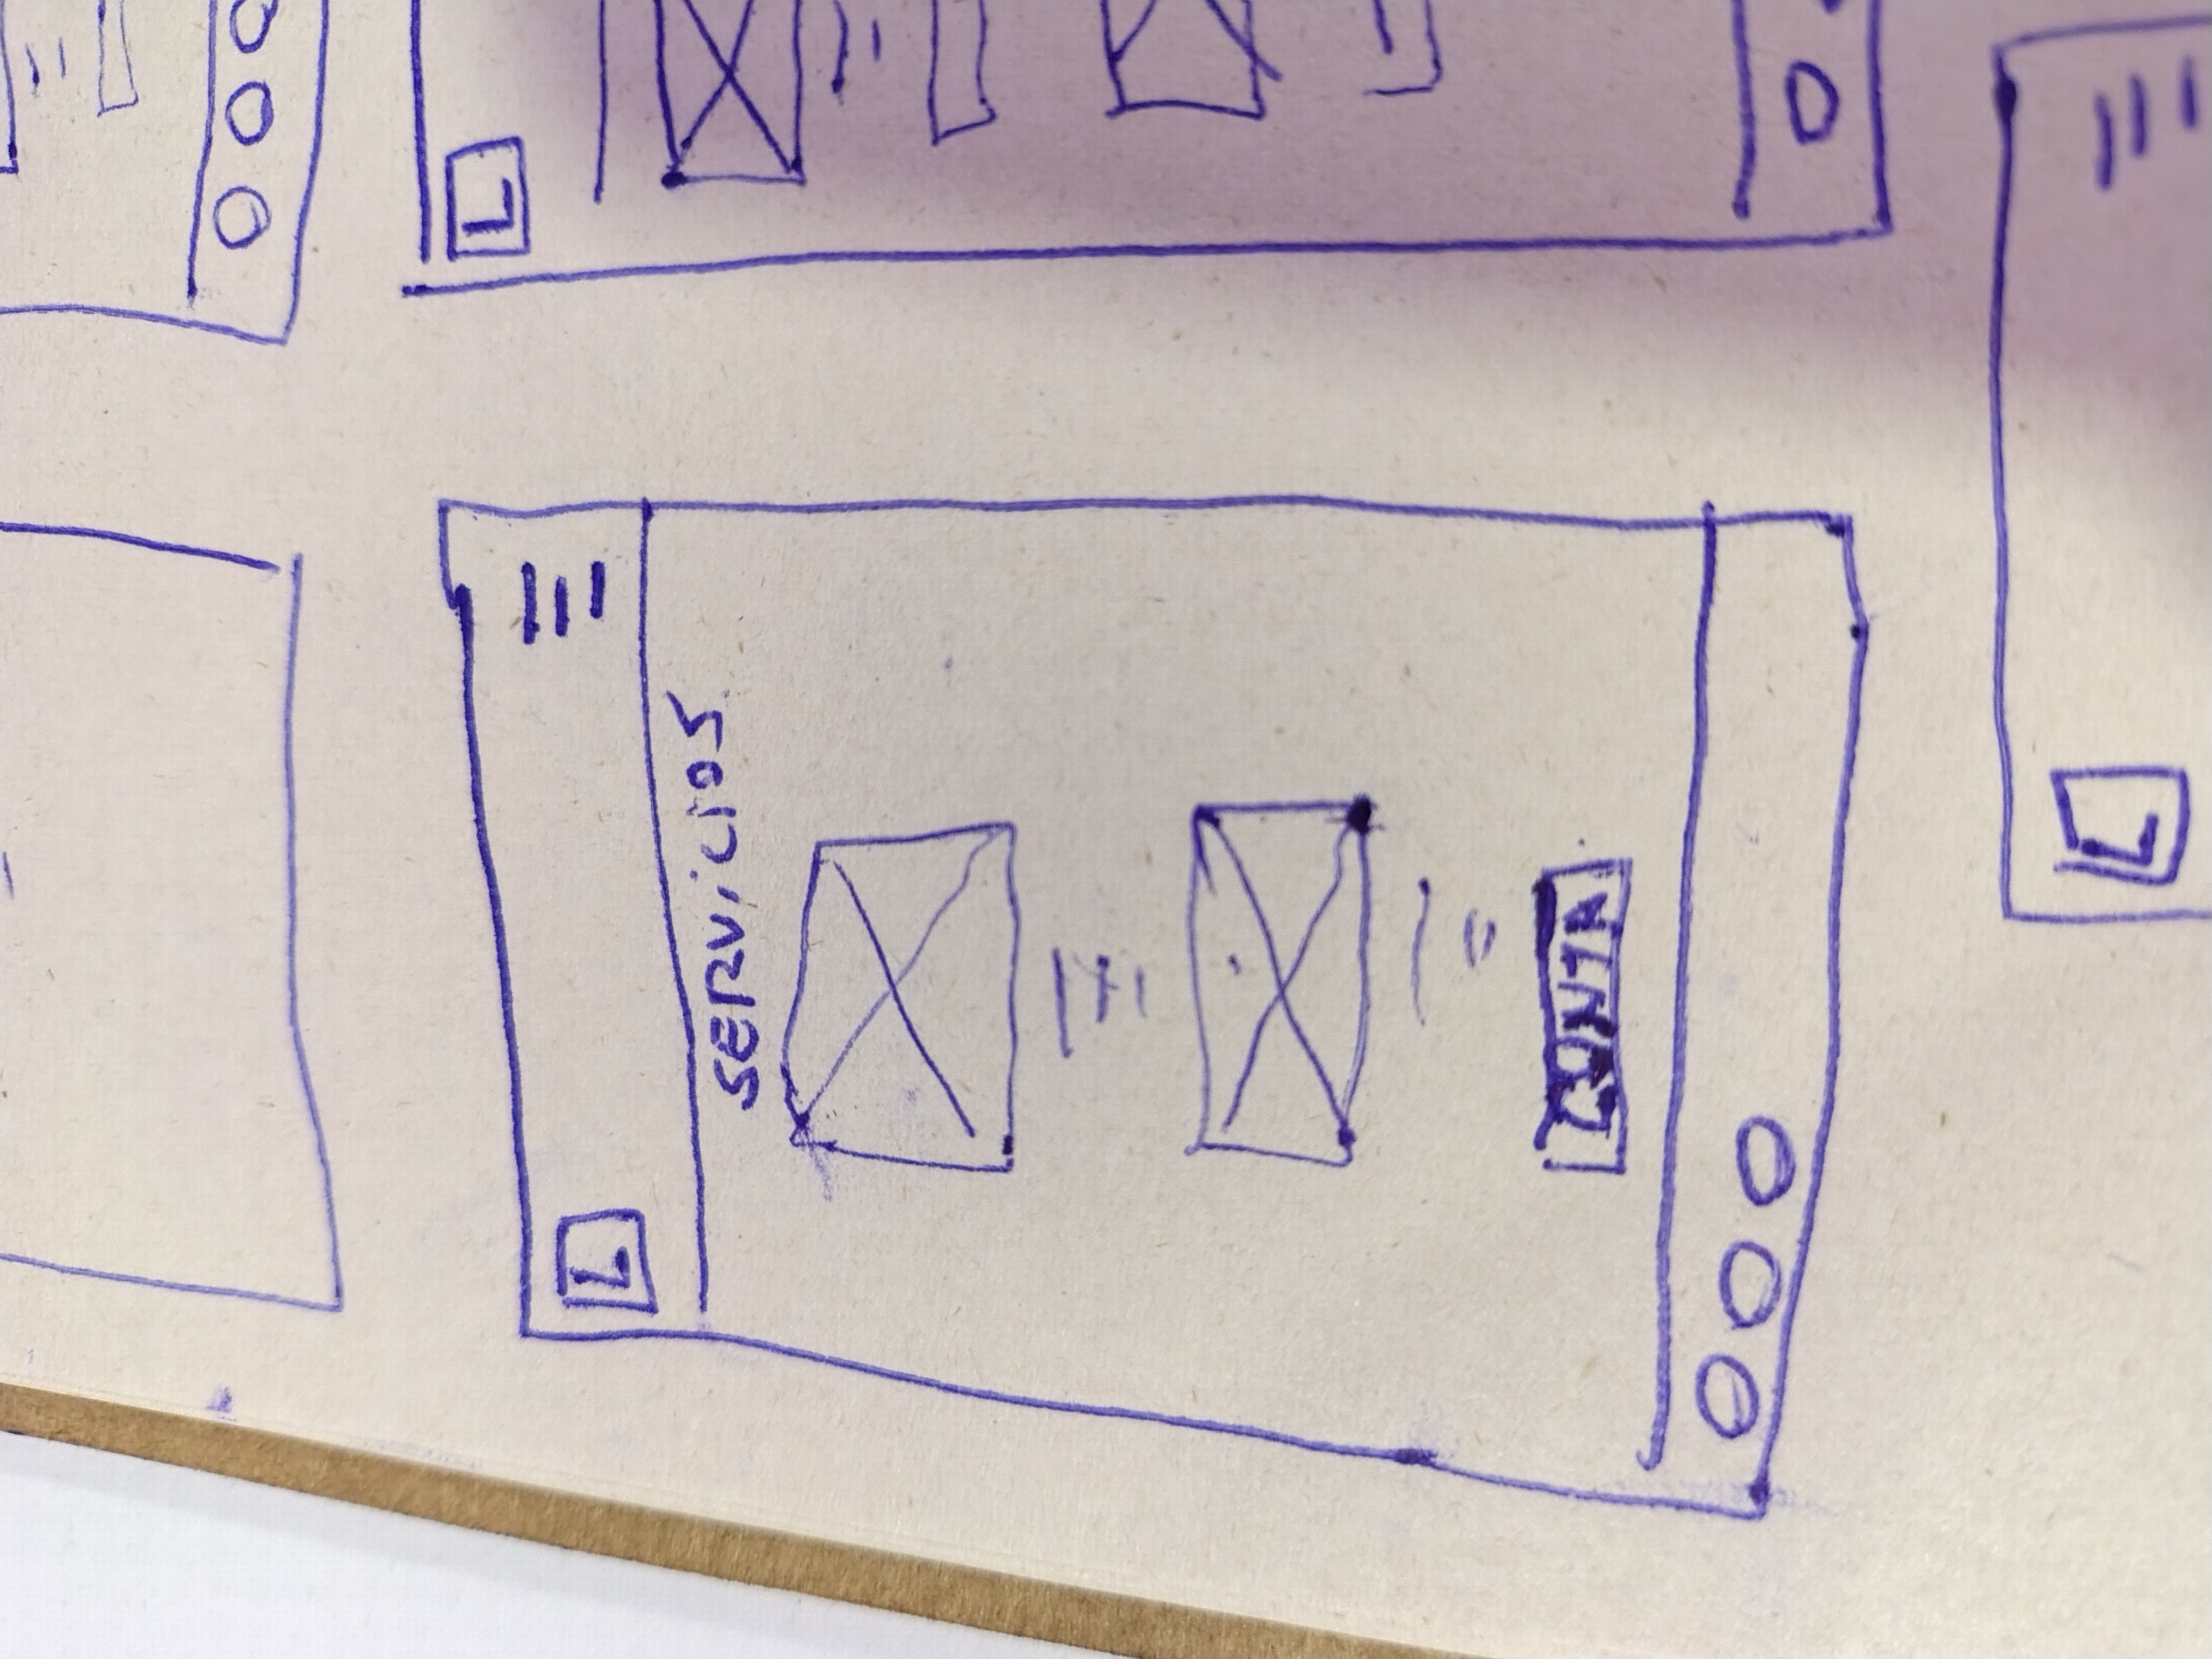 L
L
SERViCiOS
CONTA
L